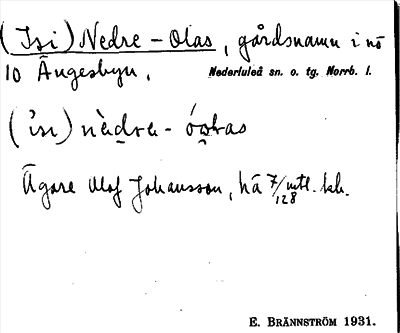 (Isi) Nedre-Olas, gårdsnamn i nö
10 Ängesbyn. Nederluleå sn. o. tg. Norrb. l.
Ägare Olof Johansson, hä 7/128 mtl. kh.
E. BRÄNNSTRÖM 1931.